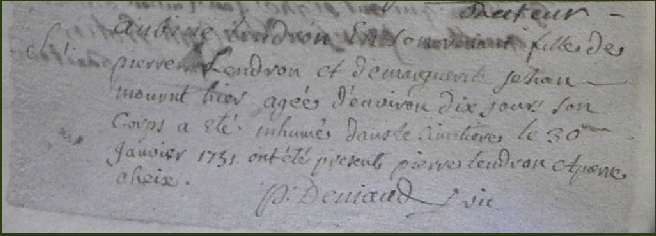 Recteur
aubine tendron en son vivant fille de
pierre tendron et de marguerite Jehan
mourut hier agée d'environ dix jours son
Corps a eté inhumé dans le Cimitiere le 30
Janvier 1731 ont été presents pierre tendron et pierre
oheix.
p. Deniaud vic